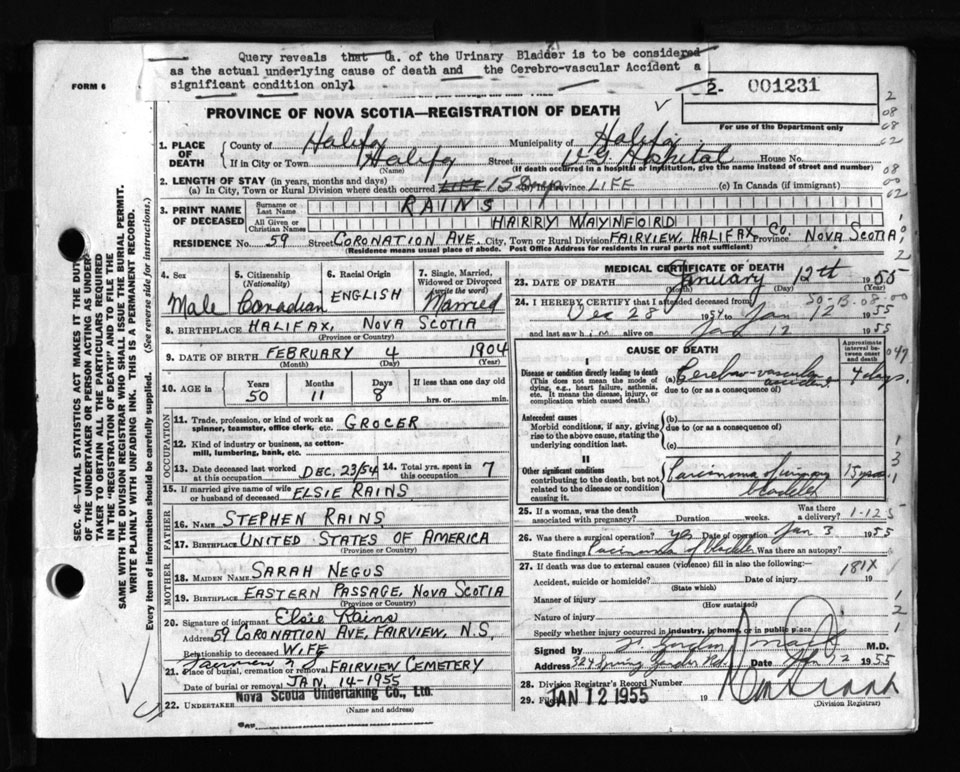 Query reveals that Ca. of the Urinary Bladder is to be considered
as the actual underlying cause of death and the Cerebro-vascular Accident a
significant condition only!
FORM 6
2- 001231
For use of the Department only
PROVINCE OF NOVA SCOTIA—REGISTRATION OF DEATH
1. PLACE OF DEATH
County of Halifax Municipality of Halifax
If in City or Town Halifax Street V.G. Hospital House No.
(Name) (If death occurred in a hospital or institution, give the name instead of street and number)
2. LENGTH OF STAY (in years, months and days)
(a) In City, Town or Rural Division where death occurred LIFE 15 Days Province LIFE (c) In Canada (if immigrant)
3. PRINT NAME OF DECEASED
Surname or Last Name RAINS
All Given or Christian Names HARRY WAYNFORD
RESIDENCE No. 59 Street CORONATION AVE. City, Town or Rural Division FAIRVIEW, HALIFAX Co. Province NOVA SCOTIA
(Residence means usual place of abode. Post Office Address for residents in rural parts not sufficient)
4. Sex Male
5. Citizenship (Nationality) Canadian
6. Racial Origin ENGLISH
7. Single, Married, Widowed or Divorced (write the word) Married
8. BIRTHPLACE HALIFAX, NOVA SCOTIA
(Province or Country)
9. DATE OF BIRTH FEBRUARY 4 1904
(Month) (Day) (Year)
10. AGE IN Years 50 Months 11 Days 8 If less than one day old
hrs. or min.
OCCUPATION
11. Trade, profession or kind of work as spinner, teamster, office clerk, etc. GROCER
12. Kind of industry or business, as cotton-mill, lumbering, bank, etc.
13. Date deceased last worked at this occupation DEC. 23/54 14. Total yrs. spent in this occupation 7
15. If married give name of wife or husband of deceased ELSIE RAINS
FATHER
16. NAME STEPHEN RAINS
17. BIRTHPLACE UNITED STATES OF AMERICA
(Province or Country)
MOTHER
18. MAIDEN NAME SARAH NEGUS
19. BIRTHPLACE EASTERN PASSAGE, NOVA SCOTIA
(Province or Country)
20. Signature of informant Elsie Rains
Address 59 CORONATION AVE, FAIRVIEW, N.S.
Relationship to deceased WIFE
21. Place of burial, cremation or removal Fairview FAIRVIEW CEMETERY
Date of burial or removal JAN. 14-1955
22. UNDERTAKER Nova Scotia Undertaking Co., Ltd.
(Name and address)
MEDICAL CERTIFICATE OF DEATH
23. DATE OF DEATH January 12th 1955
(Month) (Day) (Year)
24. I HEREBY CERTIFY that I attended deceased from 50-B-08-00
Dec 28 1954 to Jan 12 1955
and last saw him alive on Jan 12 1955
CAUSE OF DEATH
Approximate interval between onset and death
I
Disease or condition directly leading to death (a) Cerebro-vascular accident 4 days.
(This does not mean the mode of dying, e.g., heart failure, asthenia, etc. It means the disease, injury, or complication which caused death.)
due to (or as a consequence of)
Antecedent causes (b)
Morbid conditions, if any, giving rise to the above cause, stating the underlying condition last.
due to (or as a consequence of)
(c)
II
Other significant conditions contributing to the death, but not related to the disease or condition causing it.
Carcinoma of urinary bladder
25. If a woman, was the death associated with pregnancy? Duration weeks. Was there a delivery? 1-125
26. Was there a surgical operation? yes Date of operation Jan 3 1955
State findings Carcinoma of bladder Was there an autopsy?
27. If death was due to external causes (violence) fill in also the following:—
181X
Accident, suicide or homicide? Date of injury 19
(State which)
Manner of injury
(How sustained)
Nature of injury
Specify whether injury occurred in industry, in home, or in public place
Signed by M.D.
Address 324 Spring Garden Rd. Date Jan 12 1955
28. Division Registrar's Record Number
29. Filed JAN 12 1955 19
(Division Registrar)
SEC. 46—VITAL STATISTICS ACT MAKES IT THE DUTY
OF THE UNDERTAKER OR PERSON ACTING AS UNDER-
TAKER TO OBTAIN ALL THE PARTICULARS REQUIRED
IN THE "REGISTRATION OF DEATH" AND TO FILE THE
SAME WITH THE DIVISION REGISTRAR WHO SHALL ISSUE THE BURIAL PERMIT.
WRITE PLAINLY WITH UNFADING INK. THIS IS A PERMANENT RECORD.
Every item of information should be carefully supplied. (See reverse side for instructions.)